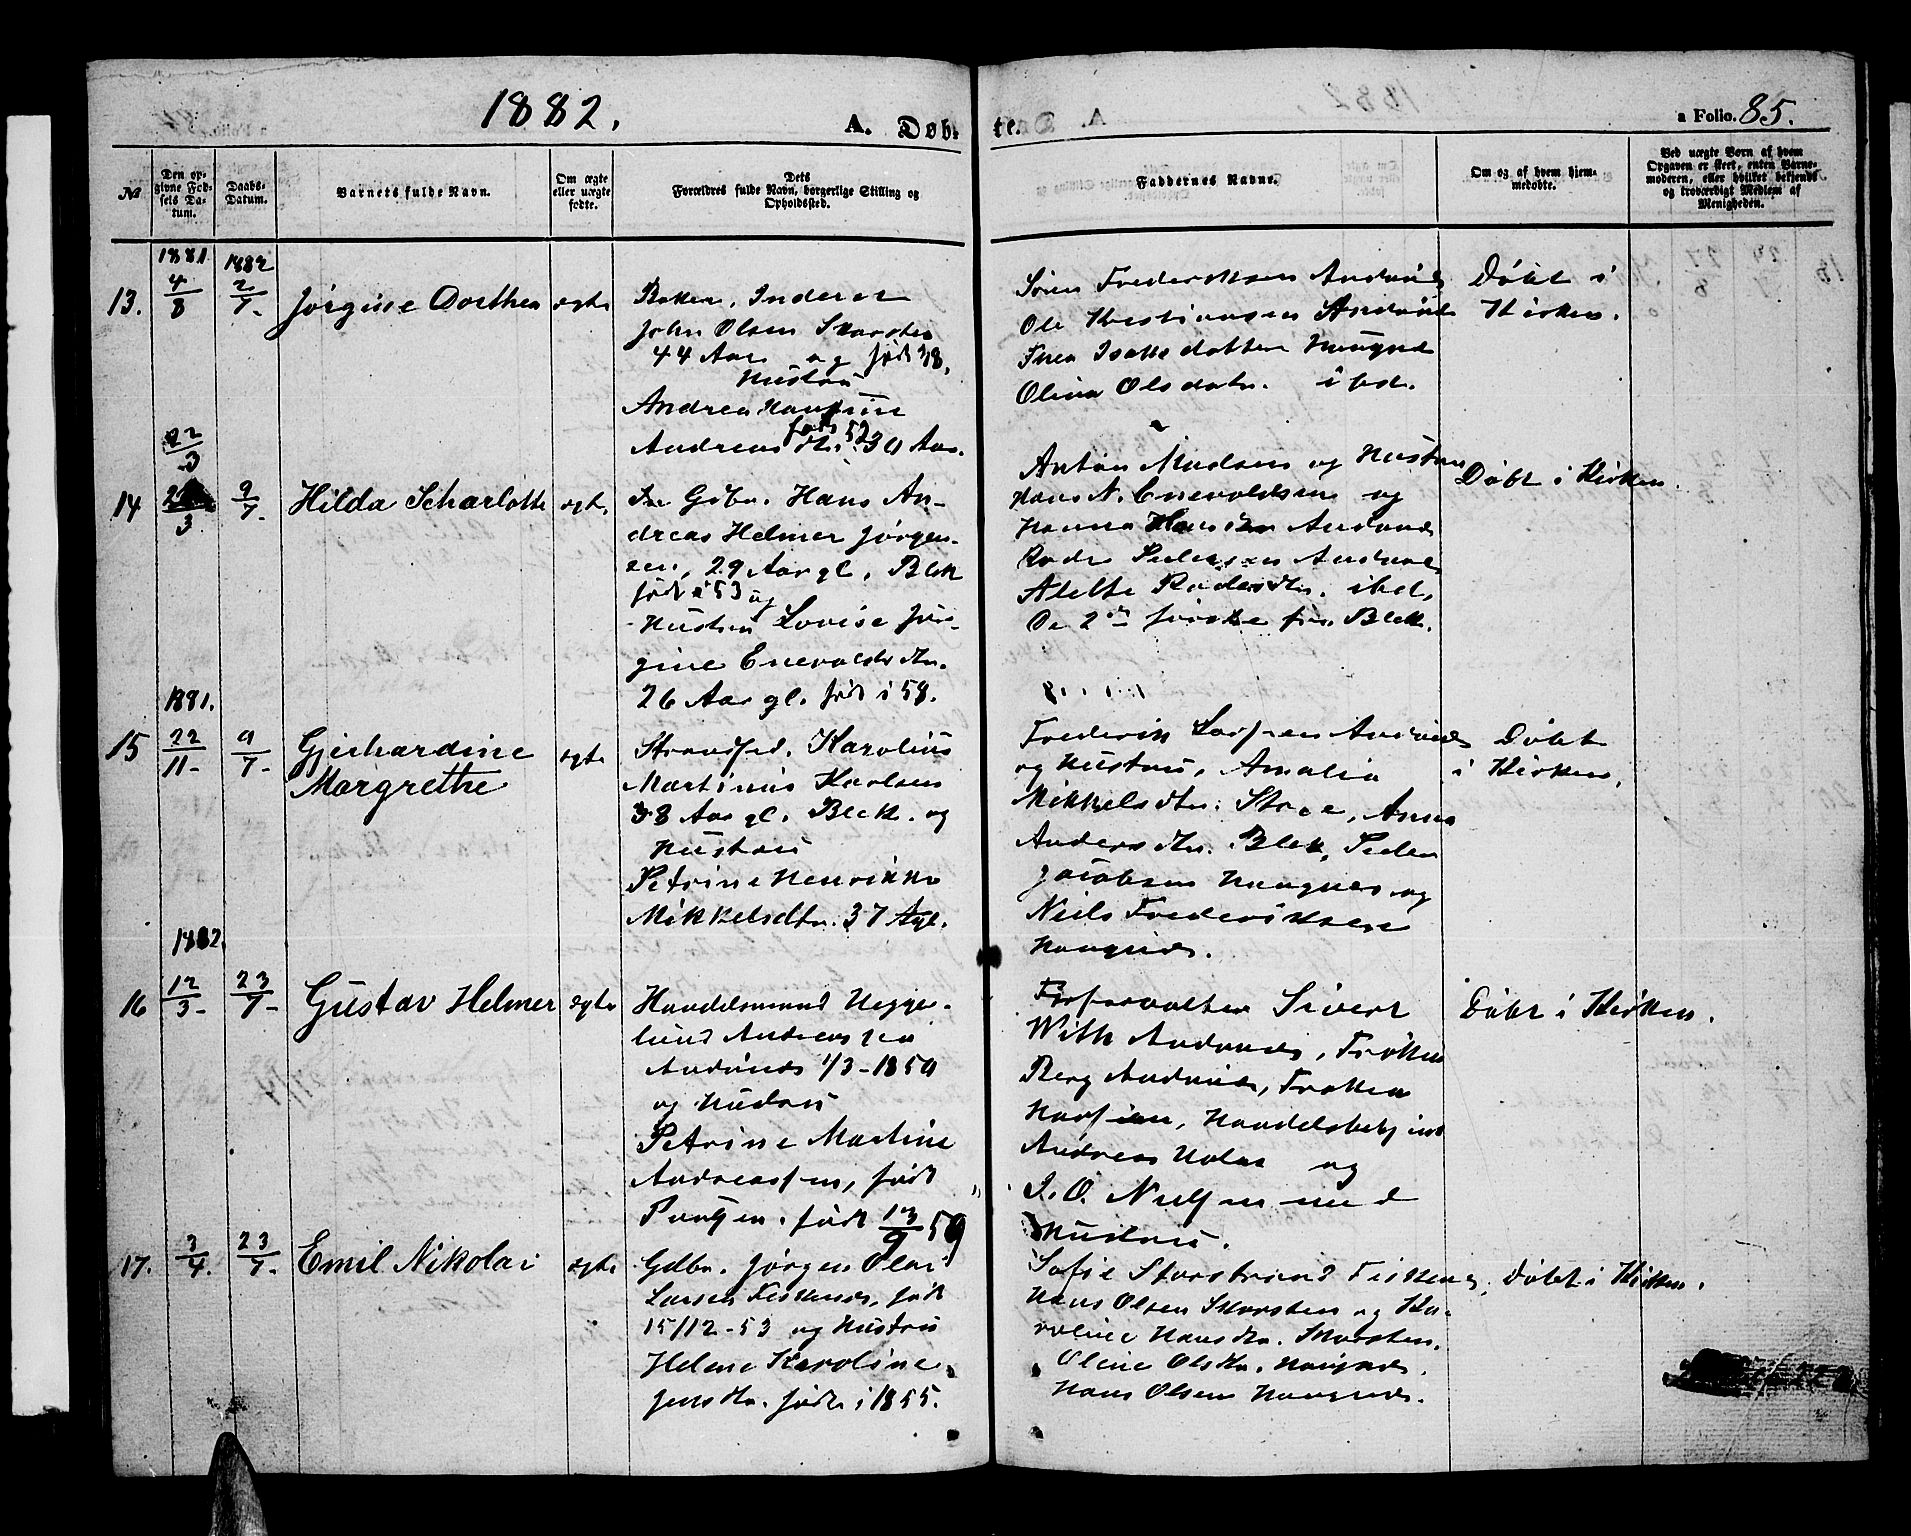 1882.
A. Døb-
te.
a Folio. 85.
No
Den op-
givne Fød-
sels Da-
tum.
Daabs-
Datum.
Barnets fulde Navn.
Om ægte
eller uægte
fødte.
Dets
Forældres fulde Navn, borgerlige Stilling og
Opholdssted.
Faddernes Navne.
Om og af hvem hjem-
medøbte.
Ved uægte Børn af hvem
Opgaven er skeet, enten Barne-
moderen, eller hvilket bekjendt
og troværdigt Medlem af
Menigheden.
13.
1881
4/8
1882
2/7.
Jørgine Dorthea
ægte
Inderst
John Olsen Skarsten
44 Aar og født 38,
Hustru
Andrea
Andreasdtr. født 52 30 Aar.
Søren Frederiksen Andenæs
Ole Kristiansen Andenæs
Isaksdatter Haugnæs
Olina Olsdatr. ibd.
Døbt i
Kirken.
14
22/3
9/7.
Hilda Scharlotte
ægte
Gdbr. Hans An-
dreas Helmer Jørgen-
sen, 29 Aar gl. Blek
født i 53 og
Hustru Lovise Jør-
gine Enevoldsdtr.
26 Aar gl. født i 58.
Anton Madsen og Hustru
Hans N. Enevoldsen og
Hanna Andenæs
Pedersen Andenæs
Aletta ibd.
De 2de første fra Blek.
Døbt i Kirken.
15
1881.
22/11-
9/7-
Gjerhardine
Margrethe
ægte
Strandsid. Karolius
Martinus Karlsen
38 Aar gl. Blek. og
Hustru
Petrine Henrikke
Mikkelsdtr. 37 A gl.
Frederik Larsen Andenæs
og Hustru, Amalia
Mikkelsdtr. Stave, Anna
Andersdtr. Blek, Peder
Jacobsen Haugnes og
Niels Frederiksen
Haugnæs.
Døbt
i Kirken.
16
1882.
12/3-
23/7-
Gustav Helmer
ægte
Handelsmand Hegge-
lund Andreassen
Andenæs 1/3-1859
og Hustru
Petrine Martine
Andreassen, født
Paulsen. født 13/9 59
Fyrforvalter Sivert
With Andenæs, Frøken
Berg Andenæs, Frøken
Hansen, Handelsbetjent
Andreas Holm og
J. O. Nielsen med
Hustru.
Døbt i Kirken.
17.
3/4.
23/7-
Emil Nikolai
ægte
Gdbr. Jørgen Olai
Larsen Fiskenæs, født
15/12-53 og Hustru
Helene Karoline
Jensdtr. født i 1855.
Sofie Storstrand Fiskenæs,
Hans Olsen Skarsten og Ka-
roline Hansdtr. Skarsten.
Oline Olsdtr. Haugnæs.
Hans Olsen Haugnæs.
Døbt i Kirken.